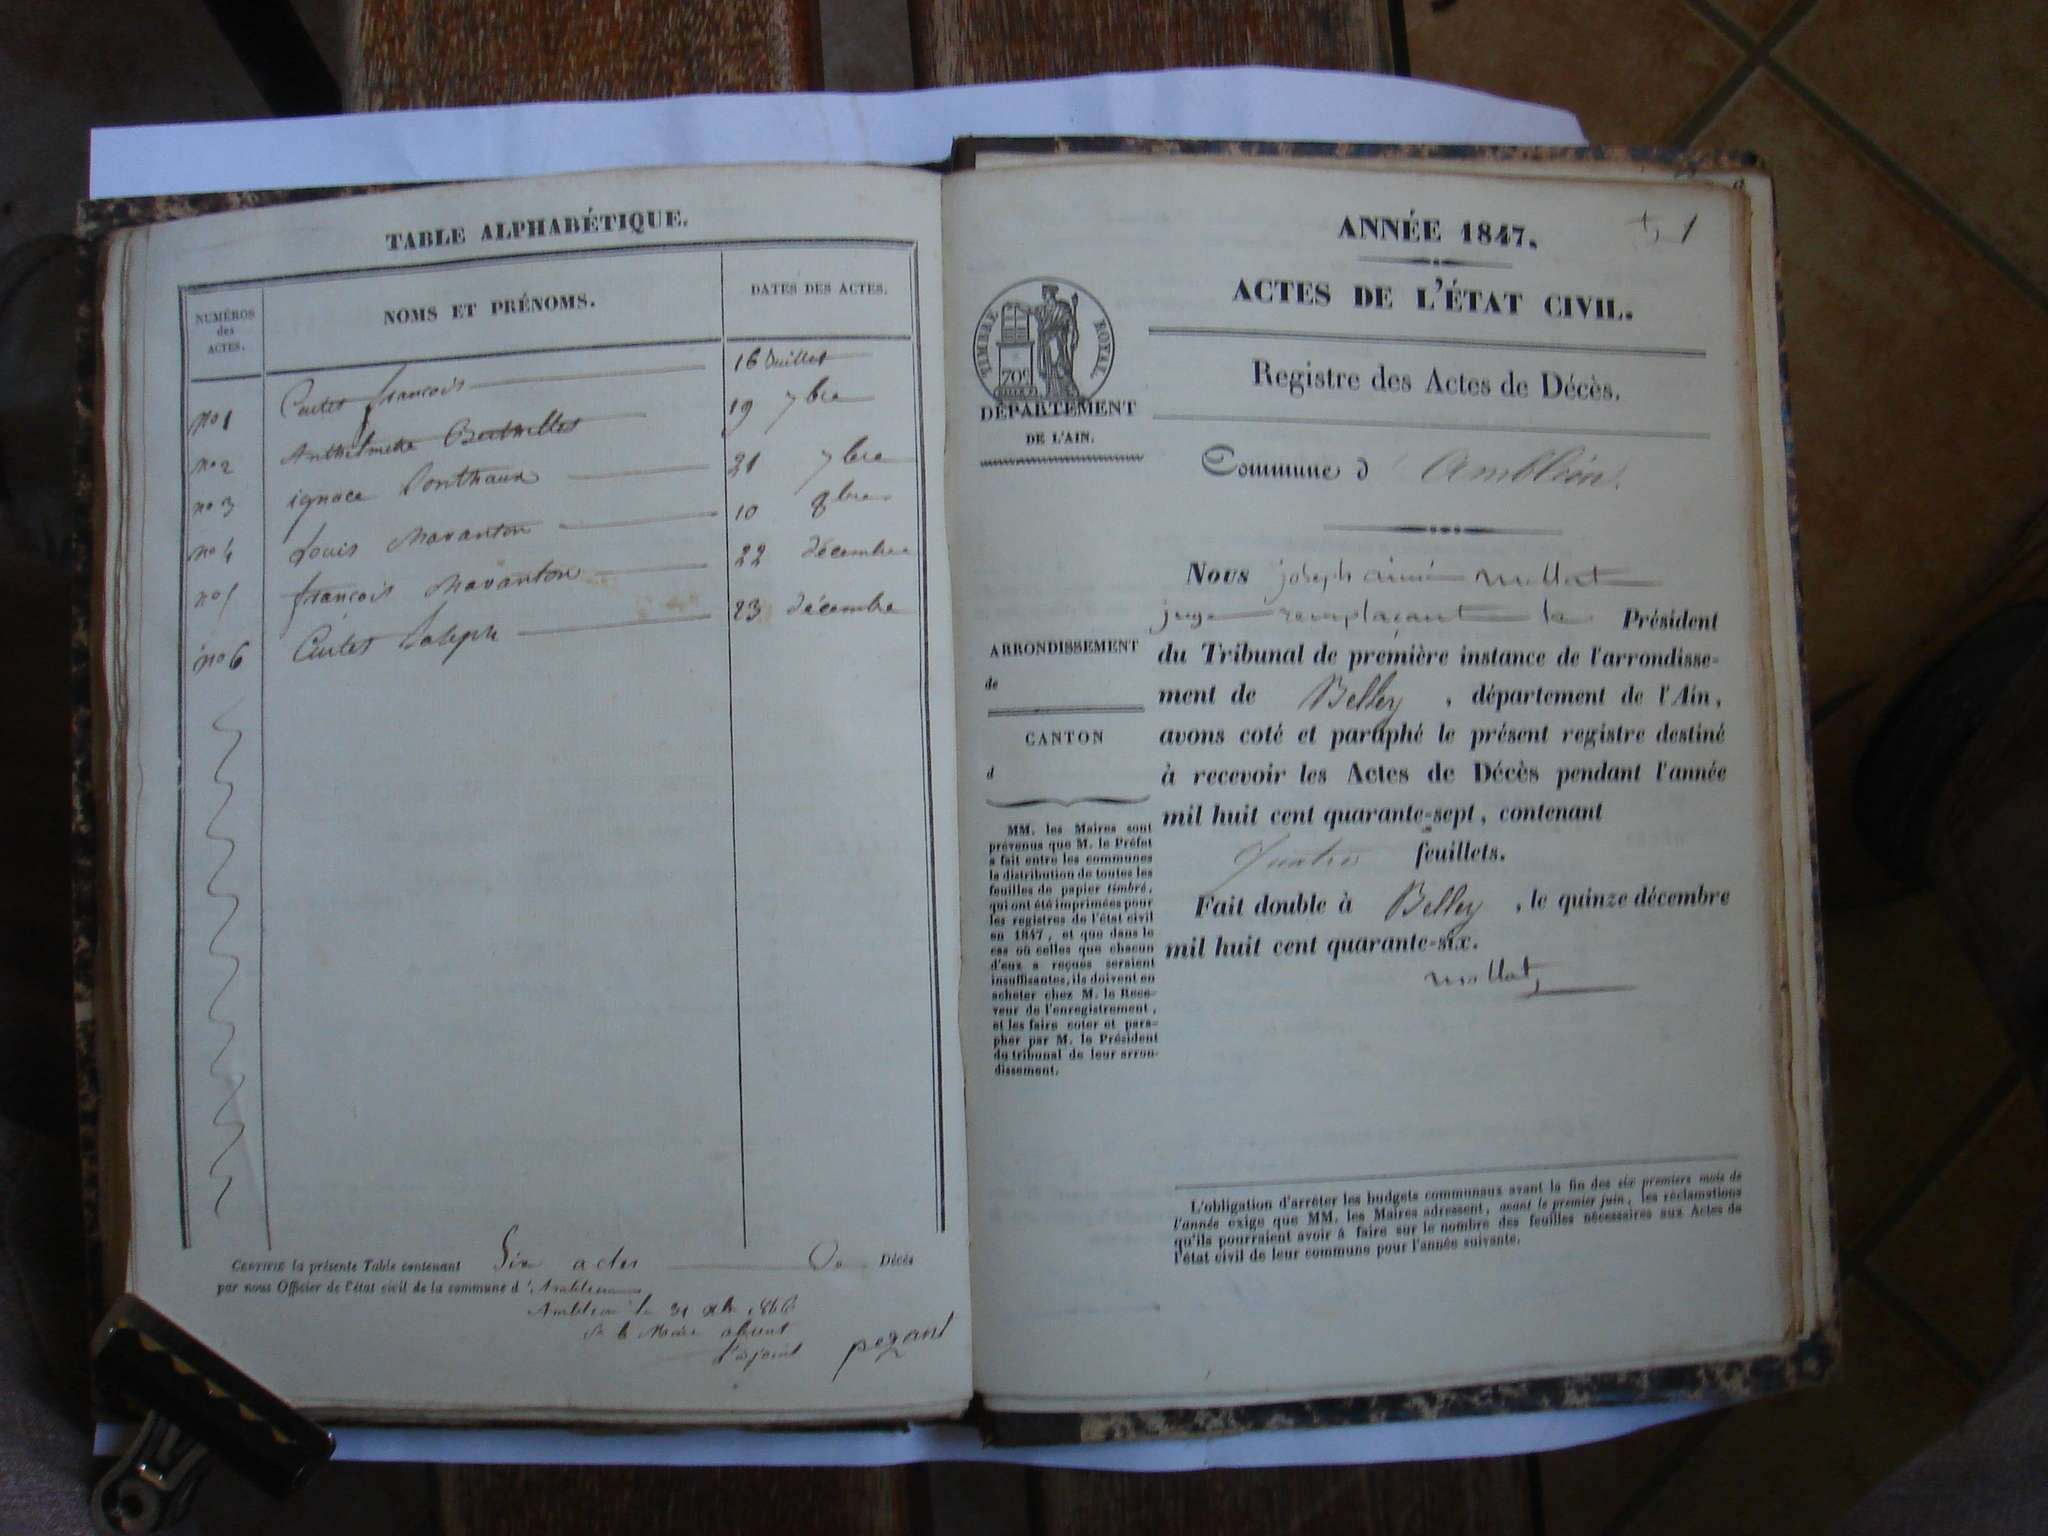 TABLE ALPHABÉTIQUE.
NUMÉROS
des
ACTES.
NOMS ET PRÉNOMS.
DATES DES ACTES.
no 1 Curtet françois 16 Juillet
no 2 19 7bre
no 3 ignace Ponthaux 21 7bre
no 4 Louis Mavanton 10 8bre
no 5 françois Mavanton 22 décembre
no 6 Curtet Joseph 23 décembre
CERTIFIÉ la présente Table contenant Six actes Décès
par nous Officier de l'état civil de la commune d' Ambléon
Ambléon le 31
Pr le Maire absent
l'adjoint
pezant
1
ANNÉE 1847.
ACTES DE L'ÉTAT CIVIL.
TIMBRE ROYAL
70c
Registre des Actes de Décès.
DÉPARTEMENT
DE L'AIN.
Commune d' Ambléon.
Nous joseph aimé mollat
juge remplaçant le Président
du Tribunal de première instance de l'arrondisse-
ment de Belley, département de l'Ain,
avons coté et paraphé le présent registre destiné
à recevoir les Actes de Décès pendant l'année
mil huit cent quarante-sept, contenant
quatre feuillets.
Fait double à Belley, le quinze décembre
mil huit cent quarante-six.
mollat
ARRONDISSEMENT
de
CANTON
d
MM. les Maires sont
prévenus que M. le Préfet
a fait entre les communes
la distribution de toutes les
feuilles de papier timbré,
qui ont été imprimées pour
les registres de l'état civil
en 1847, et que dans le
cas où celles que chacun
d'eux a reçues seraient
insuffisantes, ils doivent en
acheter chez M. le Rece-
veur de l'enregistrement,
et les faire coter et para-
pher par M. le Président
du tribunal de leur arron-
dissement.
L'obligation d'arrêter les budgets communaux avant la fin des six premiers mois de
l'année exige que MM. les Maires adressent, avant le premier juin, les réclamations
qu'ils pourraient avoir à faire sur le nombre des feuilles nécessaires aux Actes de
l'état civil de leur commune pour l'année suivante.